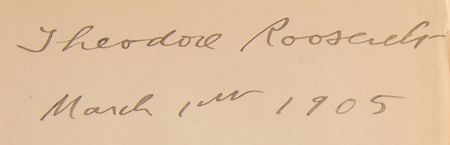 Theodore Roosevelt
March 1st 1905